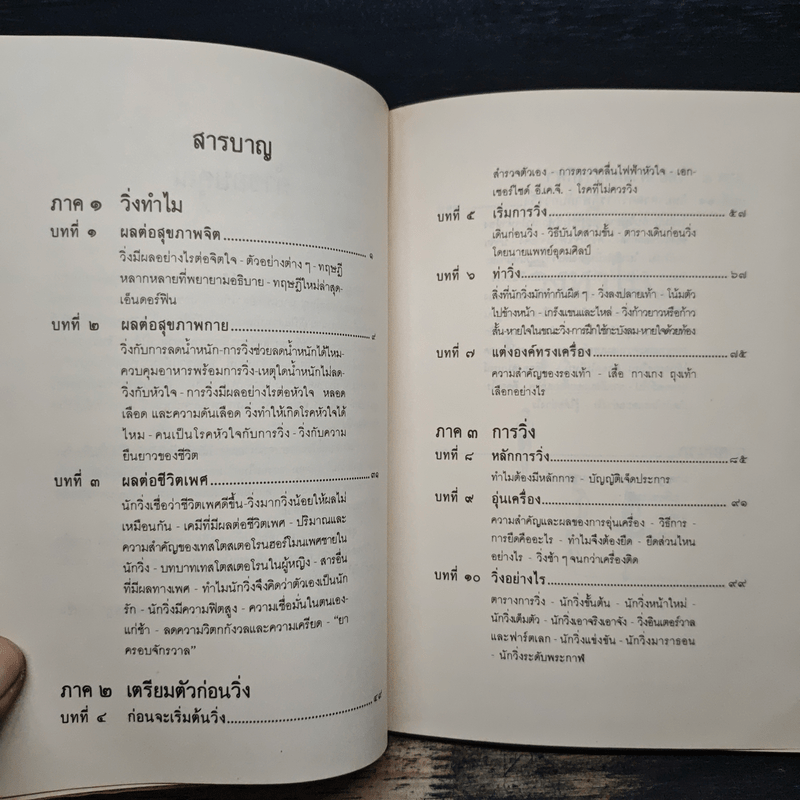 สารบาญ
ภาค ๑ วิ่งทำไม
บทที่ ๑ ผลต่อสุขภาพจิต ๑
วิ่งมีผลอย่างไรต่อจิตใจ - ตัวอย่างต่าง ๆ - ทฤษฎี
หลากหลายที่พยายามอธิบาย - ทฤษฎีใหม่ล่าสุด-
เอ็นดอร์ฟิน
บทที่ ๒ ผลต่อสุขภาพกาย ๙
วิ่งกับการลดน้ำหนัก-การวิ่งช่วยลดน้ำหนักได้ไหม-
ควบคุมอาหารพร้อมการวิ่ง-เหตุใดน้ำหนักไม่ลด-
วิ่งกับหัวใจ - การวิ่งมีผลอย่างไรต่อหัวใจ หลอด
เลือด และความดันเลือด วิ่งทำให้เกิดโรคหัวใจได้
ไหม - คนเป็นโรคหัวใจกับการวิ่ง - วิ่งกับความ
ยืนยาวของชีวิต
บทที่ ๓ ผลต่อชีวิตเพศ ๓๑
นักวิ่งเชื่อว่าชีวิตเพศดีขึ้น-วิ่งมากวิ่งน้อยให้ผลไม่
เหมือนกัน - เคมีที่มีผลต่อชีวิตเพศ - ปริมาณและ
ความสำคัญของเทสโตสเตอโรนฮอร์โมนเพศชายใน
นักวิ่ง - บทบาทเทสโตสเตอโรนในผู้หญิง - สารอื่น
ที่มีผลทางเพศ - ทำไมนักวิ่งจึงคิดว่าตัวเองเป็นนัก
รัก - นักวิ่งมีความฟิตสูง - ความเชื่อมั่นในตนเอง-
แก่ช้า - ลดความวิตกกังวลและความเครียด - "ยา
ครอบจักรวาล"
ภาค ๒ เตรียมตัวก่อนวิ่ง
บทที่ ๔ ก่อนจะเริ่มต้นวิ่ง
สำรวจตัวเอง - การตรวจคลื่นไฟฟ้าหัวใจ - เอก-
เซอร์ไซด์ อี.เค.จี. - โรคที่ไม่ควรวิ่ง
บทที่ ๕ เริ่มการวิ่ง ๕๗
เดินก่อนวิ่ง - วิธีบันไดสามขั้น - ตารางเดินก่อนวิ่ง
โดยนายแพทย์อุดมศิลป์
บทที่ ๖ ท่าวิ่ง ๖๗
สิ่งที่นักวิ่งมักทำกันผิด ๆ - วิ่งลงปลายเท้า - โน้มตัว
ไปข้างหน้า - เกร็งแขนและไหล่ - วิ่งก้าวยาวหรือก้าว
สั้น-หายใจในขณะวิ่ง-การฝึกใช้กะบังลม-หายใจด้วยท้อง
บทที่ ๗ แต่งองค์ทรงเครื่อง ๗๕
ความสำคัญของรองเท้า - เสื้อ กางเกง ถุงเท้า
เลือกอย่างไร
ภาค ๓ การวิ่ง
บทที่ ๘ หลักการวิ่ง ๘๕
ทำไมต้องมีหลักการ - บัญญัติเจ็ดประการ
บทที่ ๙ อุ่นเครื่อง ๙๑
ความสำคัญและผลของการอุ่นเครื่อง - วิธีการ -
การยืดคืออะไร - ทำไมจึงต้องยืด - ยืดส่วนไหน
อย่างไร - วิ่งช้า ๆ จนกว่าเครื่องติด
บทที่ ๑๐ วิ่งอย่างไร ๙๙
ตารางการวิ่ง - นักวิ่งขั้นต้น - นักวิ่งหน้าใหม่ -
นักวิ่งเต็มตัว - นักวิ่งเอาจริงเอาจัง - วิ่งอินเตอร์วาล
และฟาร์ตเลก - นักวิ่งแข่งขัน - นักวิ่งมาราธอน
- นักวิ่งระดับพระกาฬ